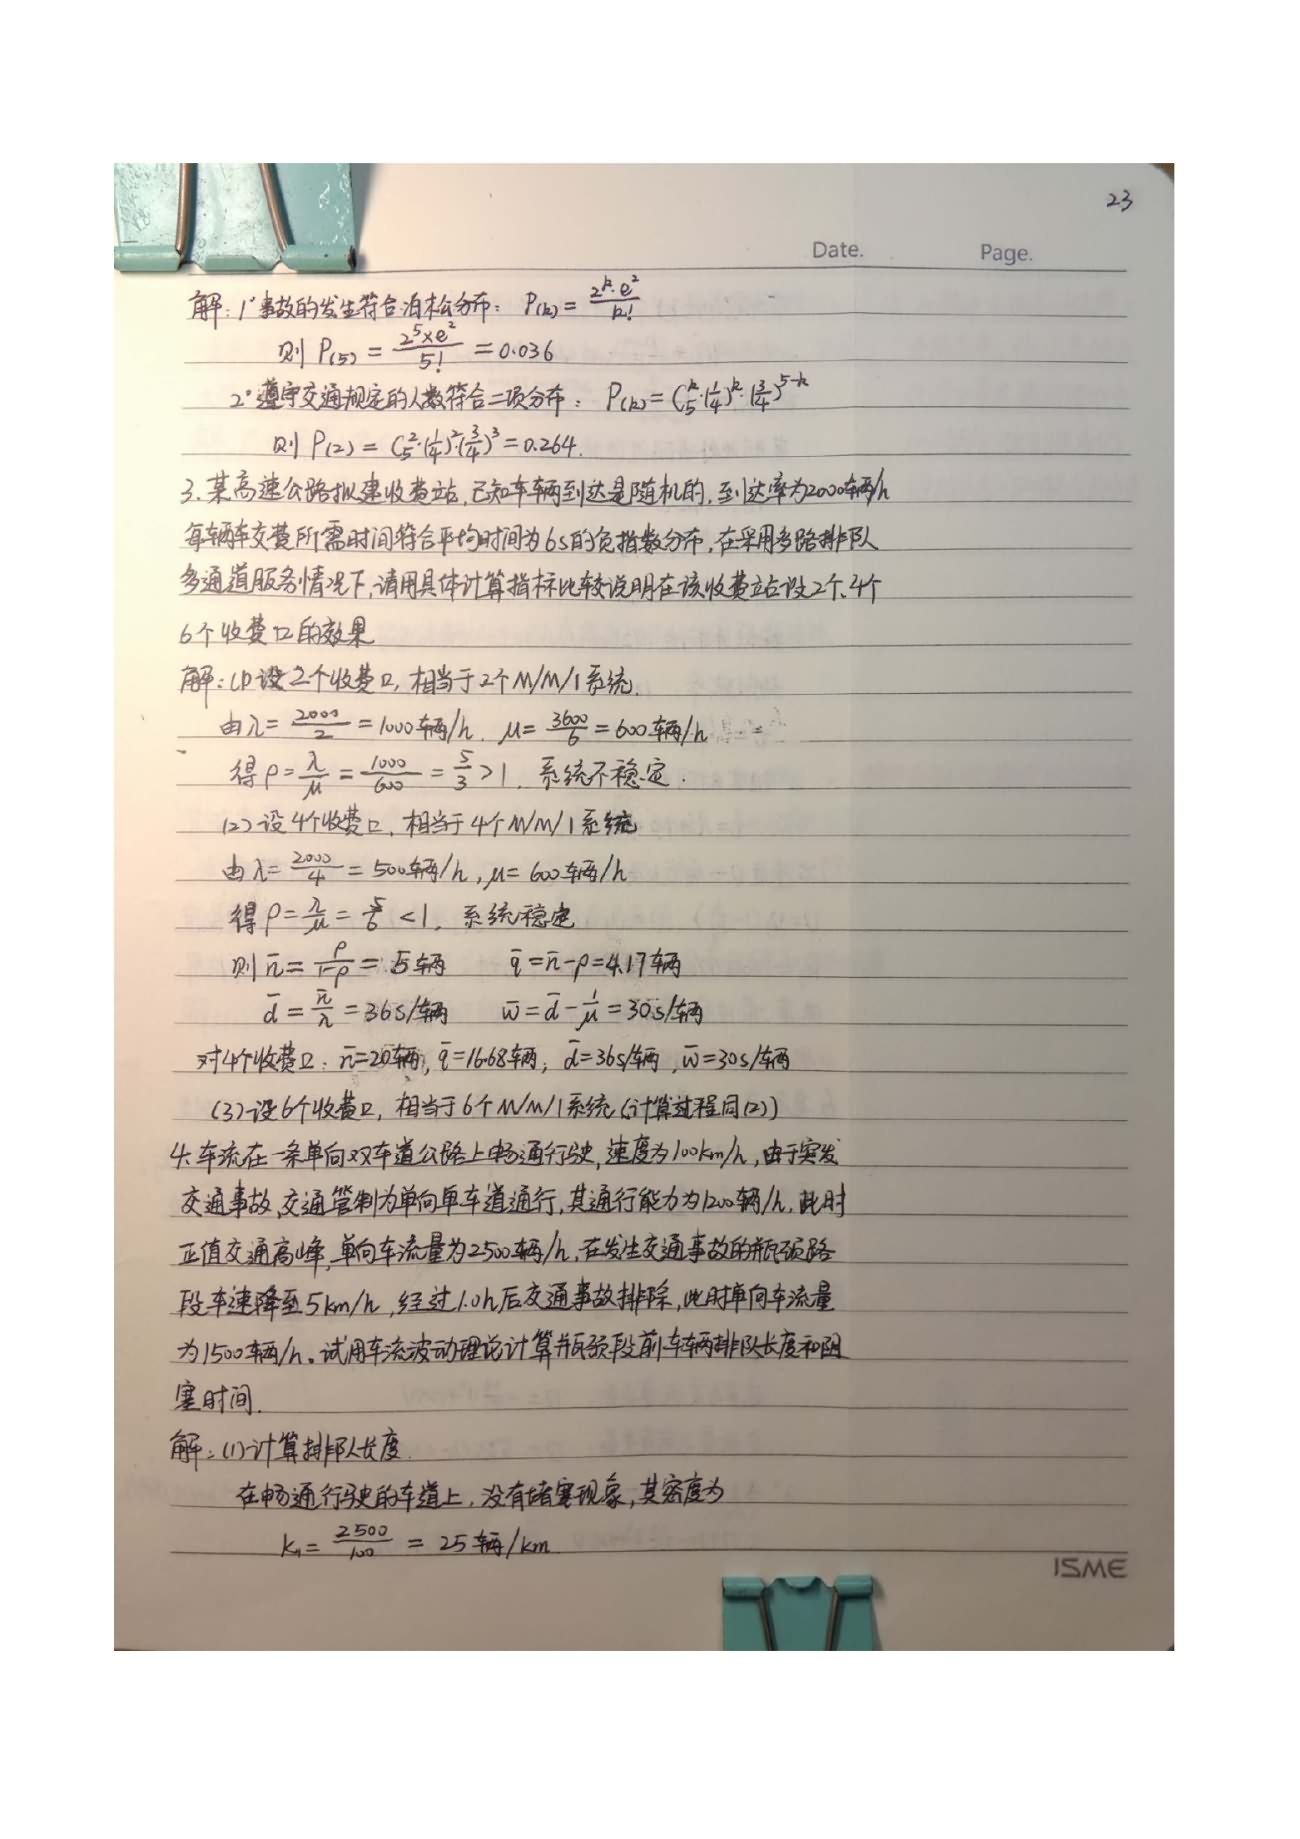 23
Date. Page.
解：1°事故的发生符合泊松分布：P(k) = 2^k·e^2 / k!
则 P(5) = 2^5×e^2 / 5! = 0.036
2°遵守交通规定的人数符合二项分布：P(k) = C_5^k·(1/4)^k·(3/4)^{5-k}
则 P(2) = C_5^2·(1/4)^2·(3/4)^3 = 0.264.
3.某高速公路拟建收费站，已知车辆到达是随机的，到达率为2000车辆/h
每辆车交费所需时间符合平均时间为6s的负指数分布，在采用多路排队
多通道服务情况下，请用具体计算指标比较说明在该收费站设2个、4个
6个收费口的效果
解：(1)设2个收费口，相当于2个M/M/1系统.
由λ = 2000/2 = 1000车辆/h. μ = 3600/6 = 600车辆/h
得ρ = λ/μ = 1000/600 = 5/3 > 1. 系统不稳定.
(2)设4个收费口，相当于4个M/M/1系统
由λ = 2000/4 = 500车辆/h, μ = 600车辆/h
得ρ = λ/μ = 5/6 < 1, 系统稳定
则 n̄ = ρ/1-ρ = 5辆 q̄ = n̄-ρ = 4.17辆
d̄ = n̄/λ = 36s/辆 w̄ = d̄ - 1/μ = 30s/辆
对4个收费口：n̄=20辆, q̄=16.68辆; d̄=36s/辆, w̄=30s/辆
(3)设6个收费口，相当于6个M/M/1系统(计算过程同(2))
4.车流在一条单向双车道公路上畅通行驶，速度为100km/h，由于突发
交通事故，交通管制为单向单车道通行，其通行能力为1200辆/h. 此时
正值交通高峰，单向车流量为2500车辆/h. 在发生交通事故的瓶颈路
段车速降至5km/h，经过1.0h后交通事故排除，此时单向车流量
为1500车辆/h。试用车流波动理论计算瓶颈段前车辆排队长度和阻
塞时间.
解：(1)计算排队长度.
在畅通行驶的车道上，没有堵塞现象，其密度为
K₁ = 2500/100 = 25辆/km
ISME